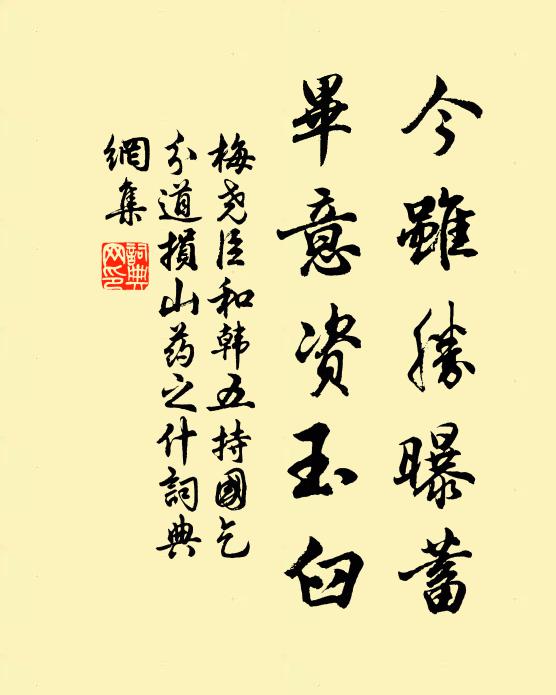 今雖勝曝蓄
畢意資玉臼
梅堯臣和韩五持國乞
分道損山药之什詞典
網集
詞典網印